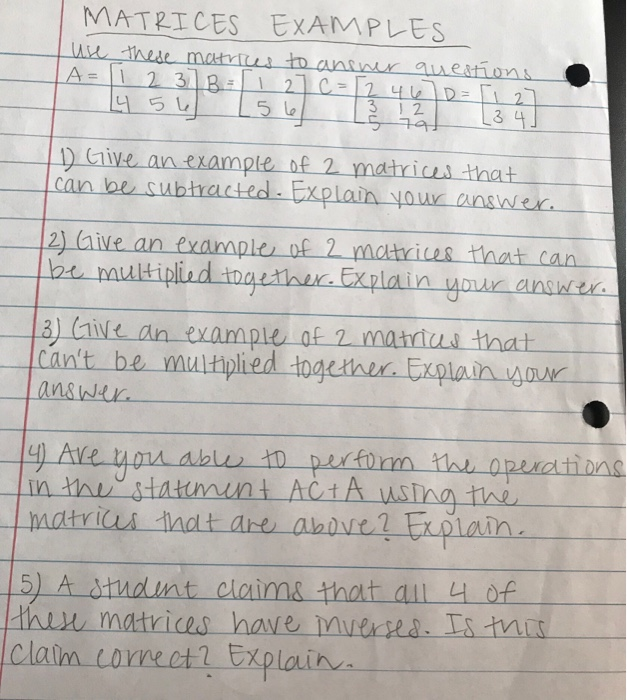 MATRICES EXAMPLES
Use these matrices to answer questions
A = [1 2 3] B = [1 2] C = [2 4 6] D = [1 2]
[4 5 6] [5 6] [3 1 2] [3 4]
[5 7 9]
1) Give an example of 2 matrices that
can be subtracted. Explain your answer.
2) Give an example of 2 matrices that can
be multiplied together. Explain your answer.
3) Give an example of 2 matrices that
can't be multiplied together. Explain your
answer.
4) Are you able to perform the operations
in the statement AC+A using the
matrices that are above? Explain.
5) A student claims that all 4 of
these matrices have inverses. Is this
claim correct? Explain.